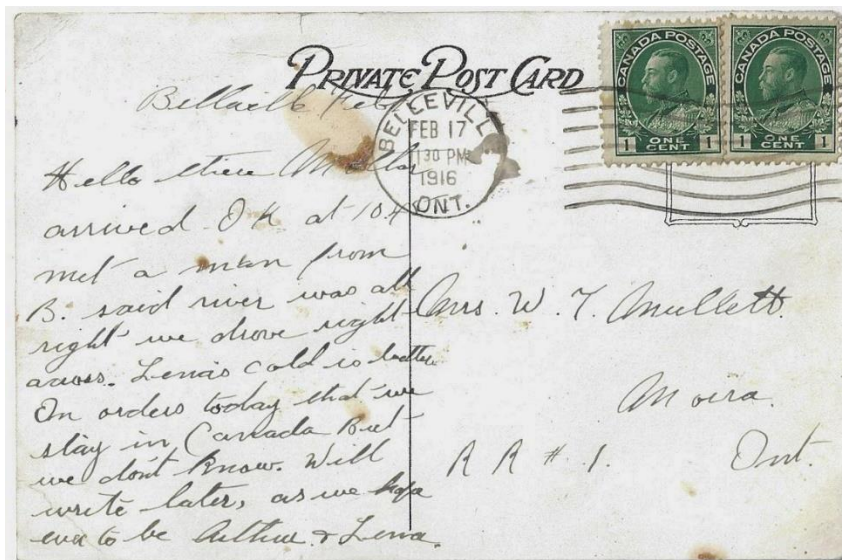 PRIVATE POST CARD
CANADA POSTAGE
1 ONE CENT 1
CANADA POSTAGE
1 ONE CENT 1
BELLEVILLE
FEB 17
1 30 PM
1916
ONT.
Hello there
arrived O K at 10.4
met a man from
B. said river was all
right we drove right
across. Lena's cold is better
On orders today that we
stay in Canada But
we don't know. Will
write later, as we
ever to be Arthur & Lena.
Mrs. W. T. Mullett.
Moira.
R R # 1. Ont.